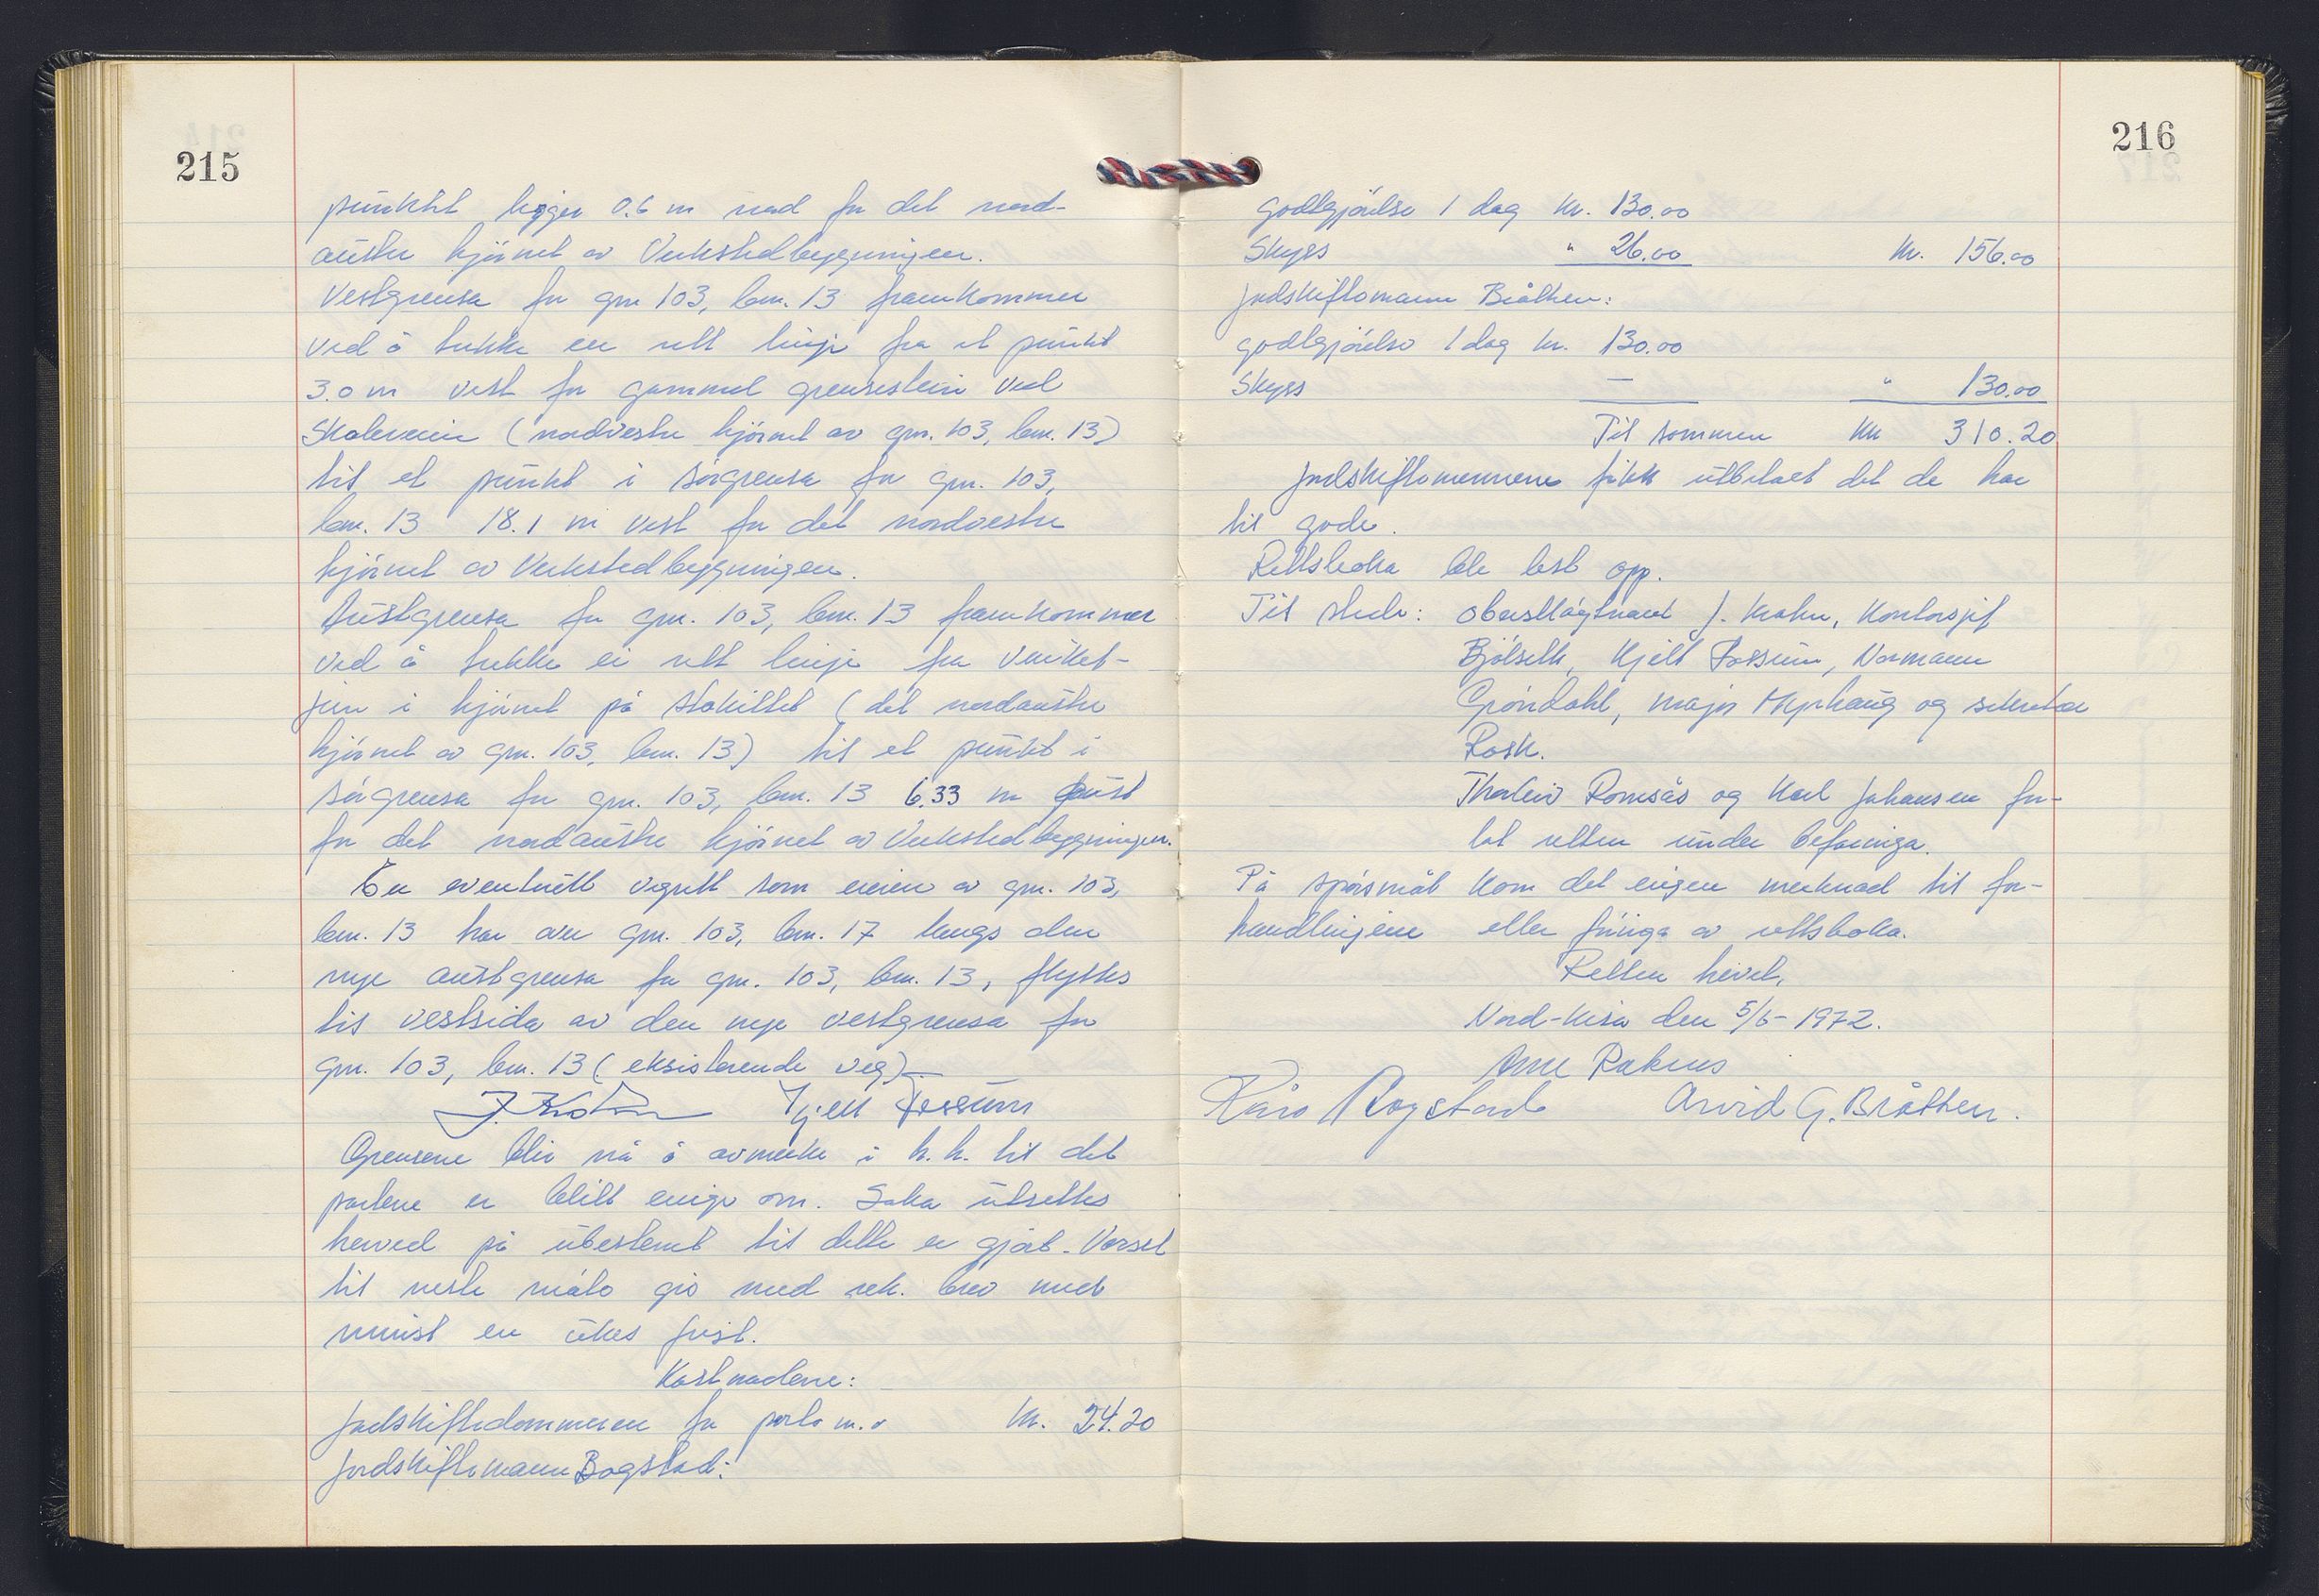 215
punktet ligger 0.6 m nord for det nord-
austre hjörnet av Verkstedbygningen.
Vestgrensa for gnr 103, bnr. 13 framkommer
ved å trekke en rett linje fra et punkt
3.0 m vest for gammel grensestein ved
Skoleveien (nordvestre hjörnet av gnr. 103, bnr. 13)
til et punkt i sörgrensa for gnr. 103,
bnr. 13 18.1 m vest for det nordvestre
hjörnet av Verkstedbygningen.
Austgrensa for gnr. 103, bnr. 13 framkommer
ved å trekke ei rett linje fra vinkel-
jern i hjörnet på stakittet (det nordaustre
hjörnet av gnr. 103, bnr. 13) til et punkt i
sörgrensa for gnr. 103, bnr. 13 6.33 m aust
for det nordaustre hjörnet av Verkstedbygningen.
En eventuell vegrett som eieren av gnr. 103,
bnr. 13 har over gnr. 103, bnr. 17 langs den
nye austgrensa for gnr. 103, bnr. 13, flyttes
til vestsida av den nye vestgrensa for
gnr. 103, bnr. 13 (eksisterende veg).
J. Krohn Kjell Fossum
Grensene blir nå å avmerke i h.h. til det
partene er blitt enige om. Saka utsettes
herved på ubestemt til dette er gjort. Varsel
til neste möte gis med rek. brev med
minst en ukes frist.
Kostnadene:
Jordskiftedommeren for porto m.v kr. 24.20
Jordskiftemann Bogstad:
216
godtgjörelse 1 dag kr. 130.00
Skyss " 26.00 kr. 156.00
Jordskiftemann Bråthen:
godtgjörelse 1 dag kr. 130.00
Skyss — " 130.00
Til sammen kr 310.20
Jordskiftemennene fikk utbetalt det de har
til gode.
Rettsboka ble lest opp.
Til stede: oberstlöytnant J. Krohn, Kontorsjef
Bjölseth, Kjell Fossum, Normann
Gröndahl, major Myrhaug og sekretær
Rosk.
Thorleiv Romsås og Karl Johansen for-
lot retten under befaringa.
På spörsmål kom det ingen merknad til for-
handlingene eller föringa av rettsboka.
Retten hevet.
Nord-Kisa den 5/5- 1972.
Arne Raknes
Kåre Bogstad Arvid G. Bråthen.